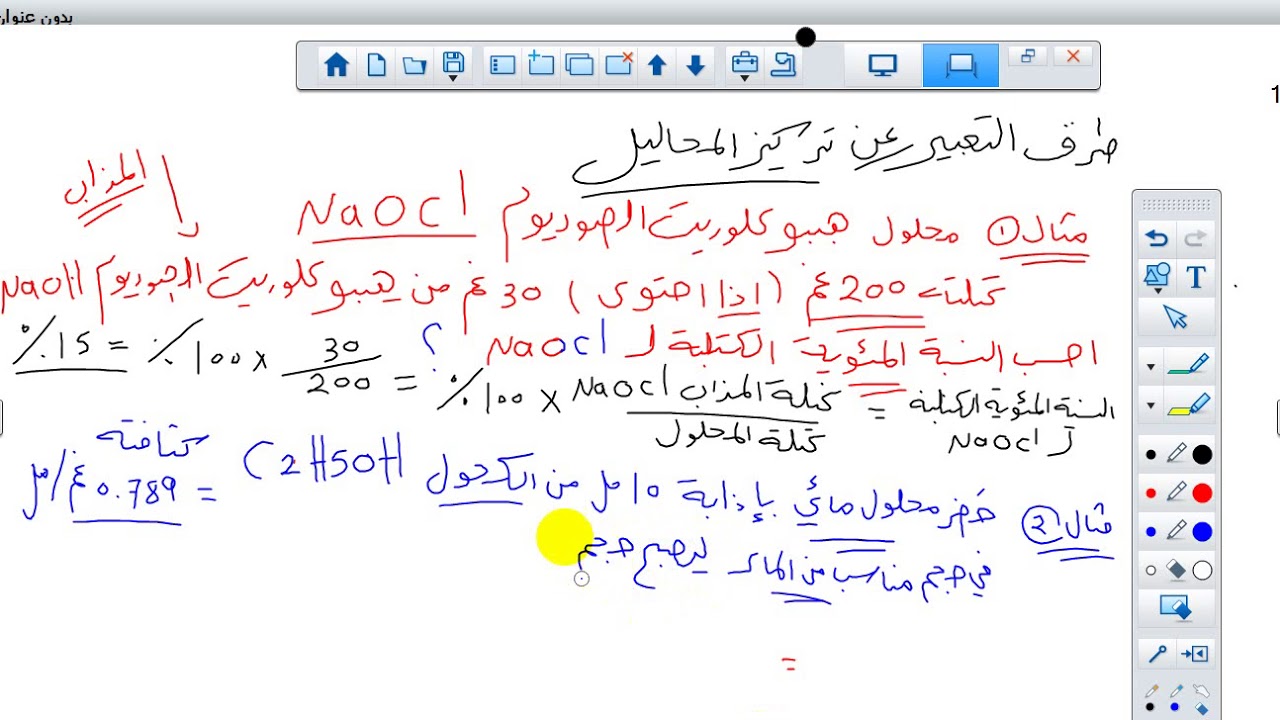 بدون عنوان
1
طرق التعبير عن تركيز المحاليل
المذاب
مثال ① محلول هيبو كلوريت الصوديوم NaOCl
كتلته 200 غم (اذا احتوى) 30 غم من هيبو كلوريت الصوديوم NaOH
احسب النسبة المئوية الكتلية لـ NaOCl ؟
النسبة المئوية الكتلية لـ NaOCl = كتلة المذاب NaOCl / كتلة المحلول × 100٪ = 30/200 × 100٪ = 15٪
مثال ② حضر محلول مائي بإذابة 10 مل من الكحول C2H5OH كثافته = 0.789 غم/مل
في حجم مناسب من الماء ليصبح حجم
=
T